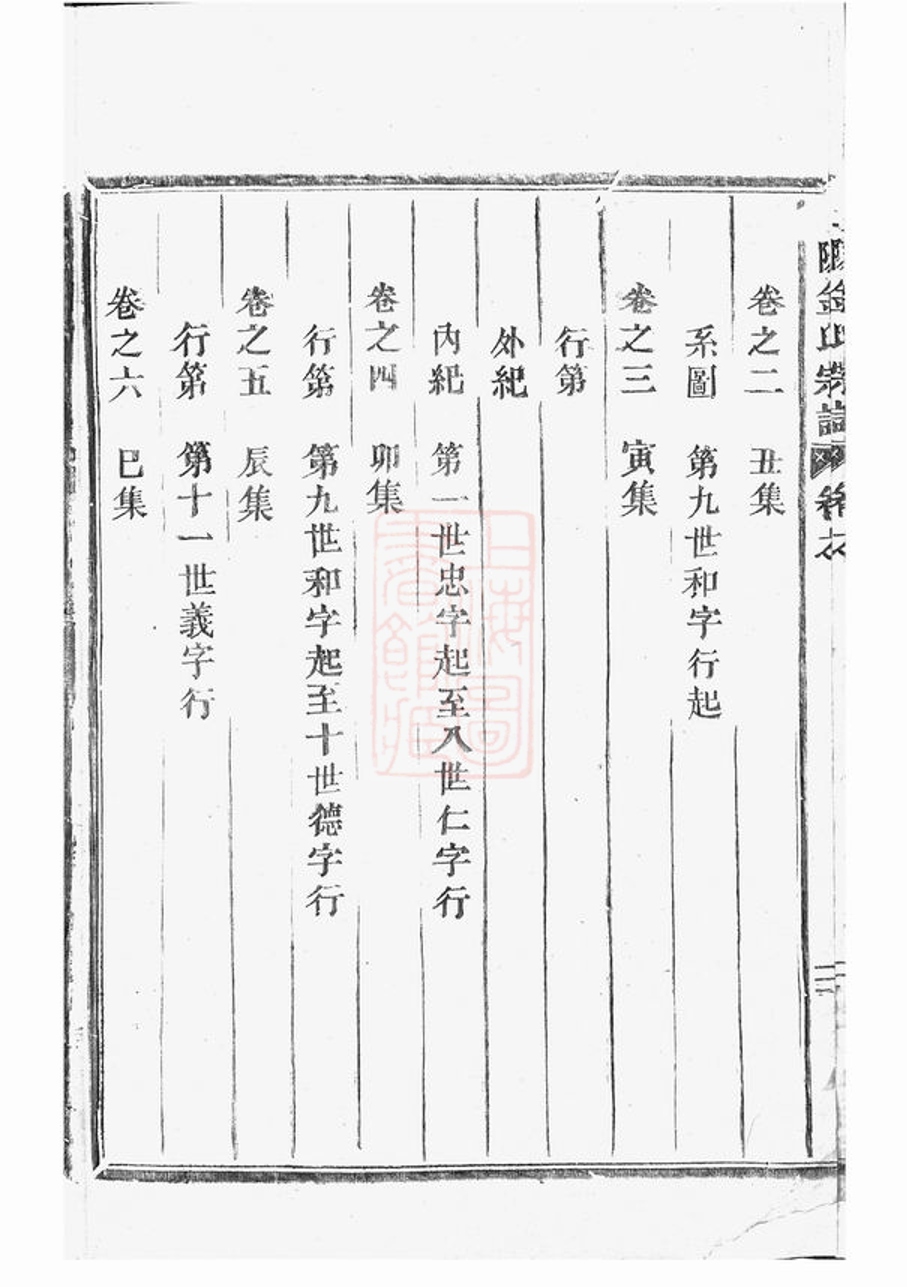 卷之二　丑集
系圖　第九世和字行起
卷之三　寅集
行第
外紀
內紀　第一世忠字起至八世仁字行
卷之四　卯集
行第　第九世和字起至十世德字行
卷之五　辰集
行第　第十一世義字行
卷之六　巳集
上海圖書館藏